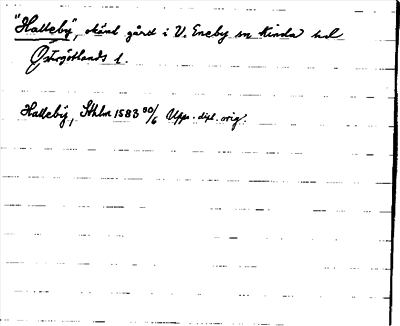 "Halleby", okänd gård i V. Eneby sn Kinda hd
Östergötlands l.
Halleby, Sthlm 1583 30/6 Upps. dipl. orig.